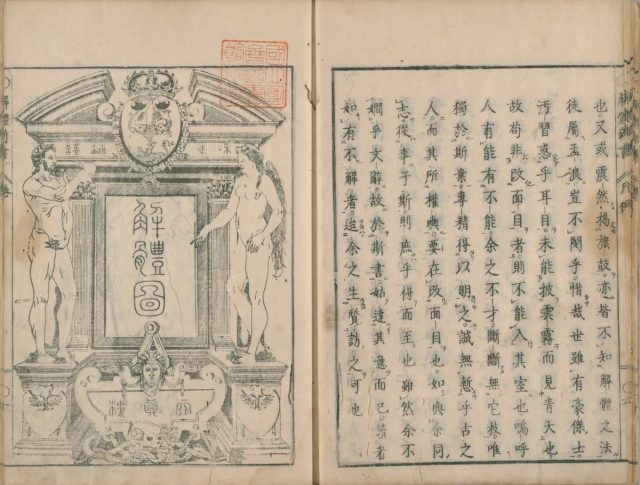 解體新書 凡例
也又或震然揭旗鼓亦皆不知解體之法
徒屬孟浪豈不閔乎惜哉世雖有豪傑士
汚習惑乎耳目未能披雲霧而見青天也
故苟非改面目者則不能入其室也嗚呼
人有能有不能余之不才斷斷無它技唯
獨於斯業專精得以明之誠無慙乎古之
人而其所權輿要在改面目也如與余同
志從事于斯則庶乎得而至也雖然余不
嫺乎文辭故於斯書姑達其意而已讀者
如有不解者迨余之生質訪之可也
解體圖
解體新書